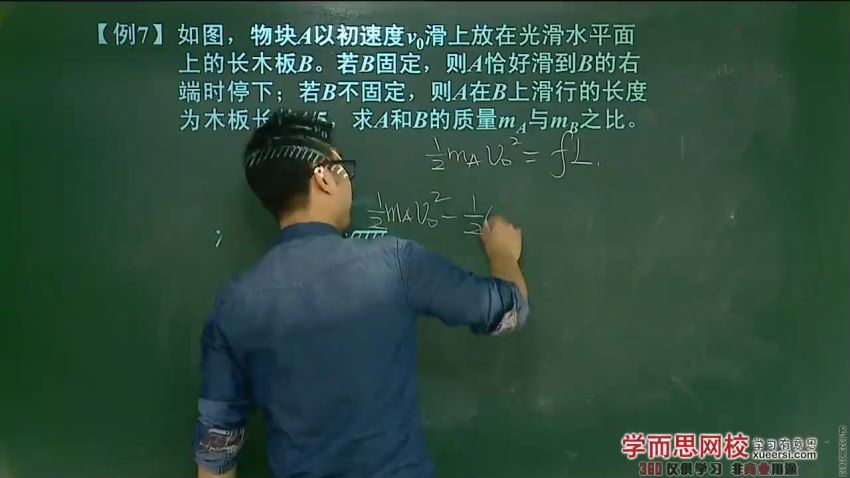 【例7】如图，物块A以初速度v₀滑上放在光滑水平面
上的长木板B。若B固定，则A恰好滑到B的右
端时停下；若B不固定，则A在B上滑行的长度
为木板长 /5，求A和B的质量mA与mB之比。
½mAv₀² = fL.
½mAv₀² - ½(
学而思网校 学习有意思
xueersi.com
360 仅供学习 非商业用途